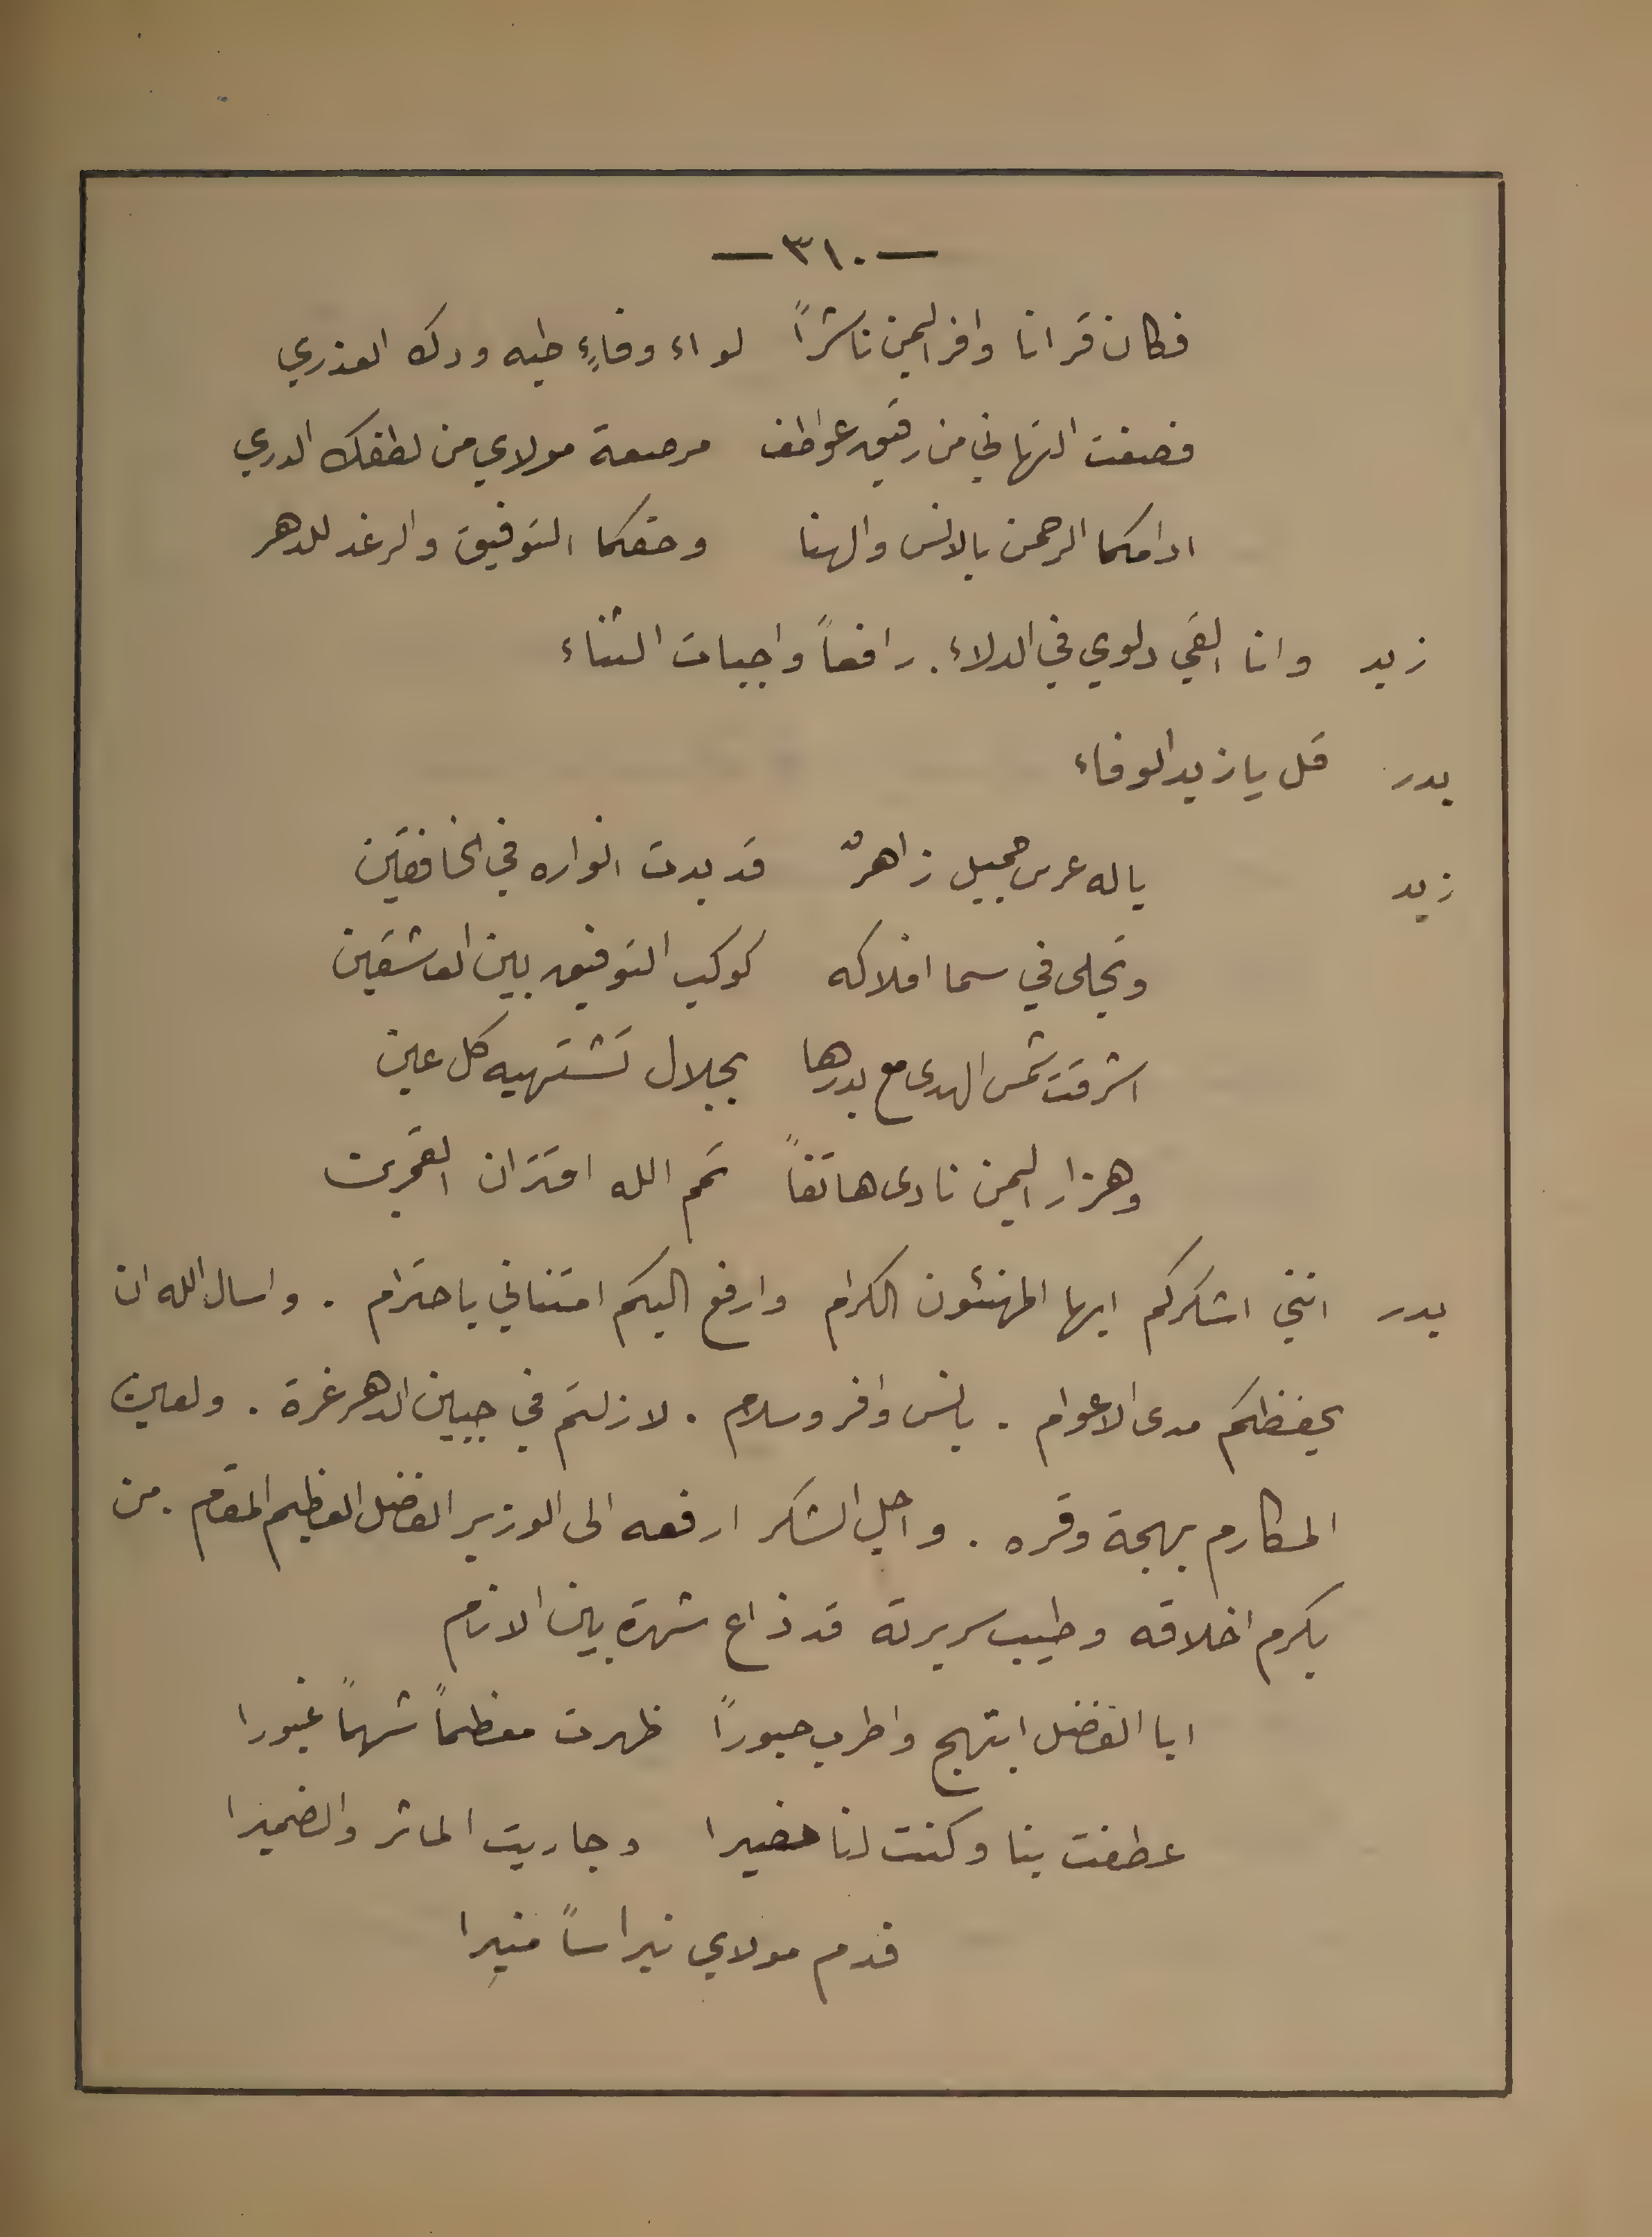 — ٣١٠ —
فكان قرانا وافر اليمن ناشراً لواء وفاءٍ طيه ودك العذري
فصغت التهاني من رقيق عواطف مرصعة مولاي من لطفك الدري
ادامكما الرحمن بالانس والهنا وحفكما التوفيق والرغد للدهر
زيد وانا القي دلوي في الدلاء . رافعاً واجبات الثناء
بدر قل يا زيد الوفاء
زيد ياله عرس جميل زاهرٌ قد بدت انواره في الخافقين
وتجلى في سما افلاكه كوكب التوفيق بين العاشقين
اشرقت شمس الهدى مع بدرها بجلال تشتهيه كل عين
وهزار اليمن نادى هاتفاً تمم الله اقتران القمرين
بدر انني اشكركم ايها المهنئون الكرام وارفع اليكم امتناني باحترام . واسال الله ان
يحفظكم مدى الاعوام . بانس وافر وسلام . لازلتم في جبين الدهر غرة . ولعين
المكارم بهجة وقره . واجل الشكر ارفعه الى الوزير الفضل العظيم المقام . من
بكرم اخلاقه وطيب سريرته قد ذاع شهرة بين الانام
ابا الفضل ابتهج واطرب حبوراً ظهرت معظماً شهماً غيورا
عطفت بنا وكنت لنا خفيرا وجاريت الماثر والضميرا
فدم مولاي نبراساً منيرا